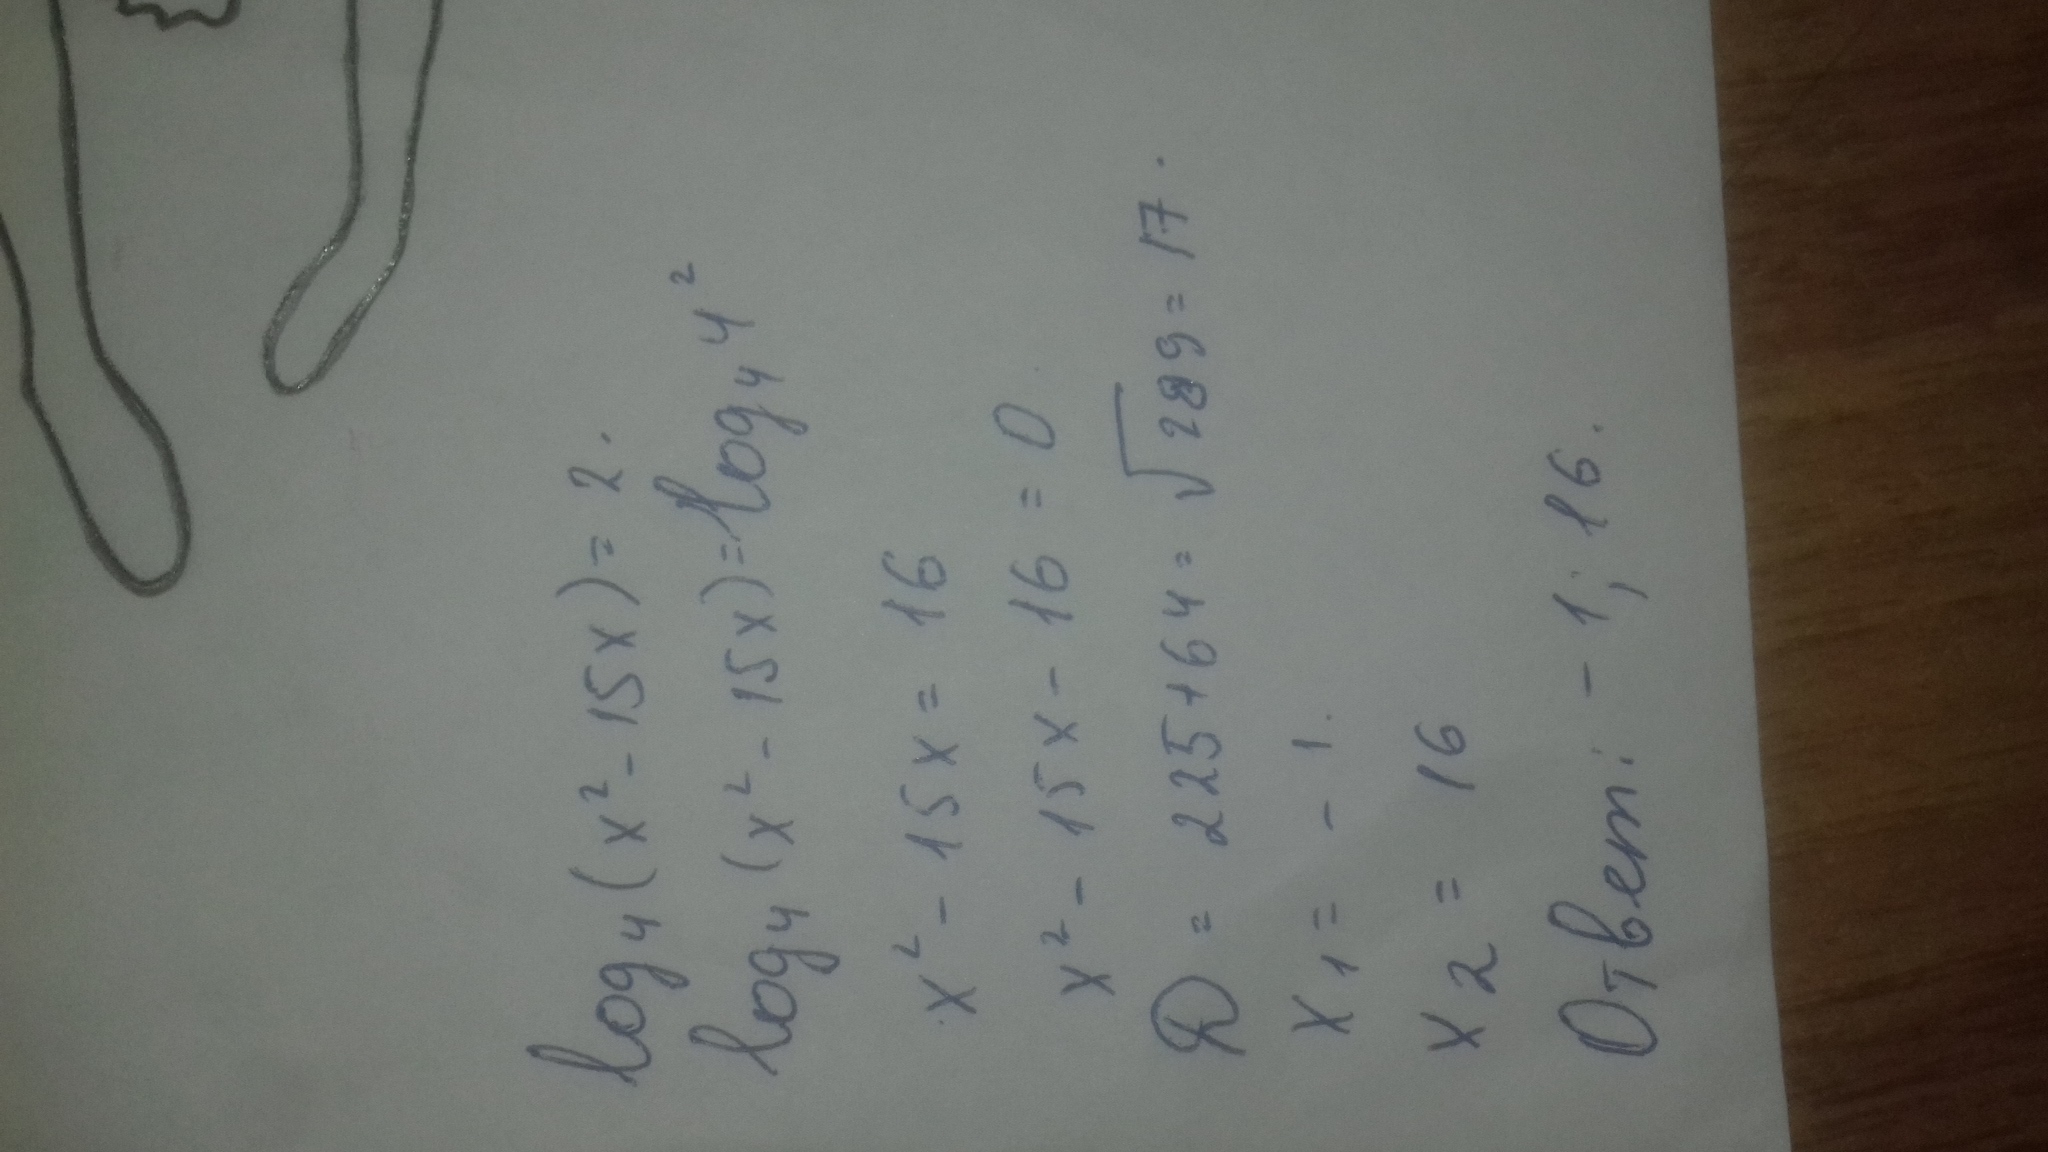 log₄(x²-15x)=2.
log₄(x²-15x)=log₄4²
x²-15x=16
x²-15x-16=0
D=225+64=√289=17.
x₁=-1.
x₂=16
Ответ: -1; 16.